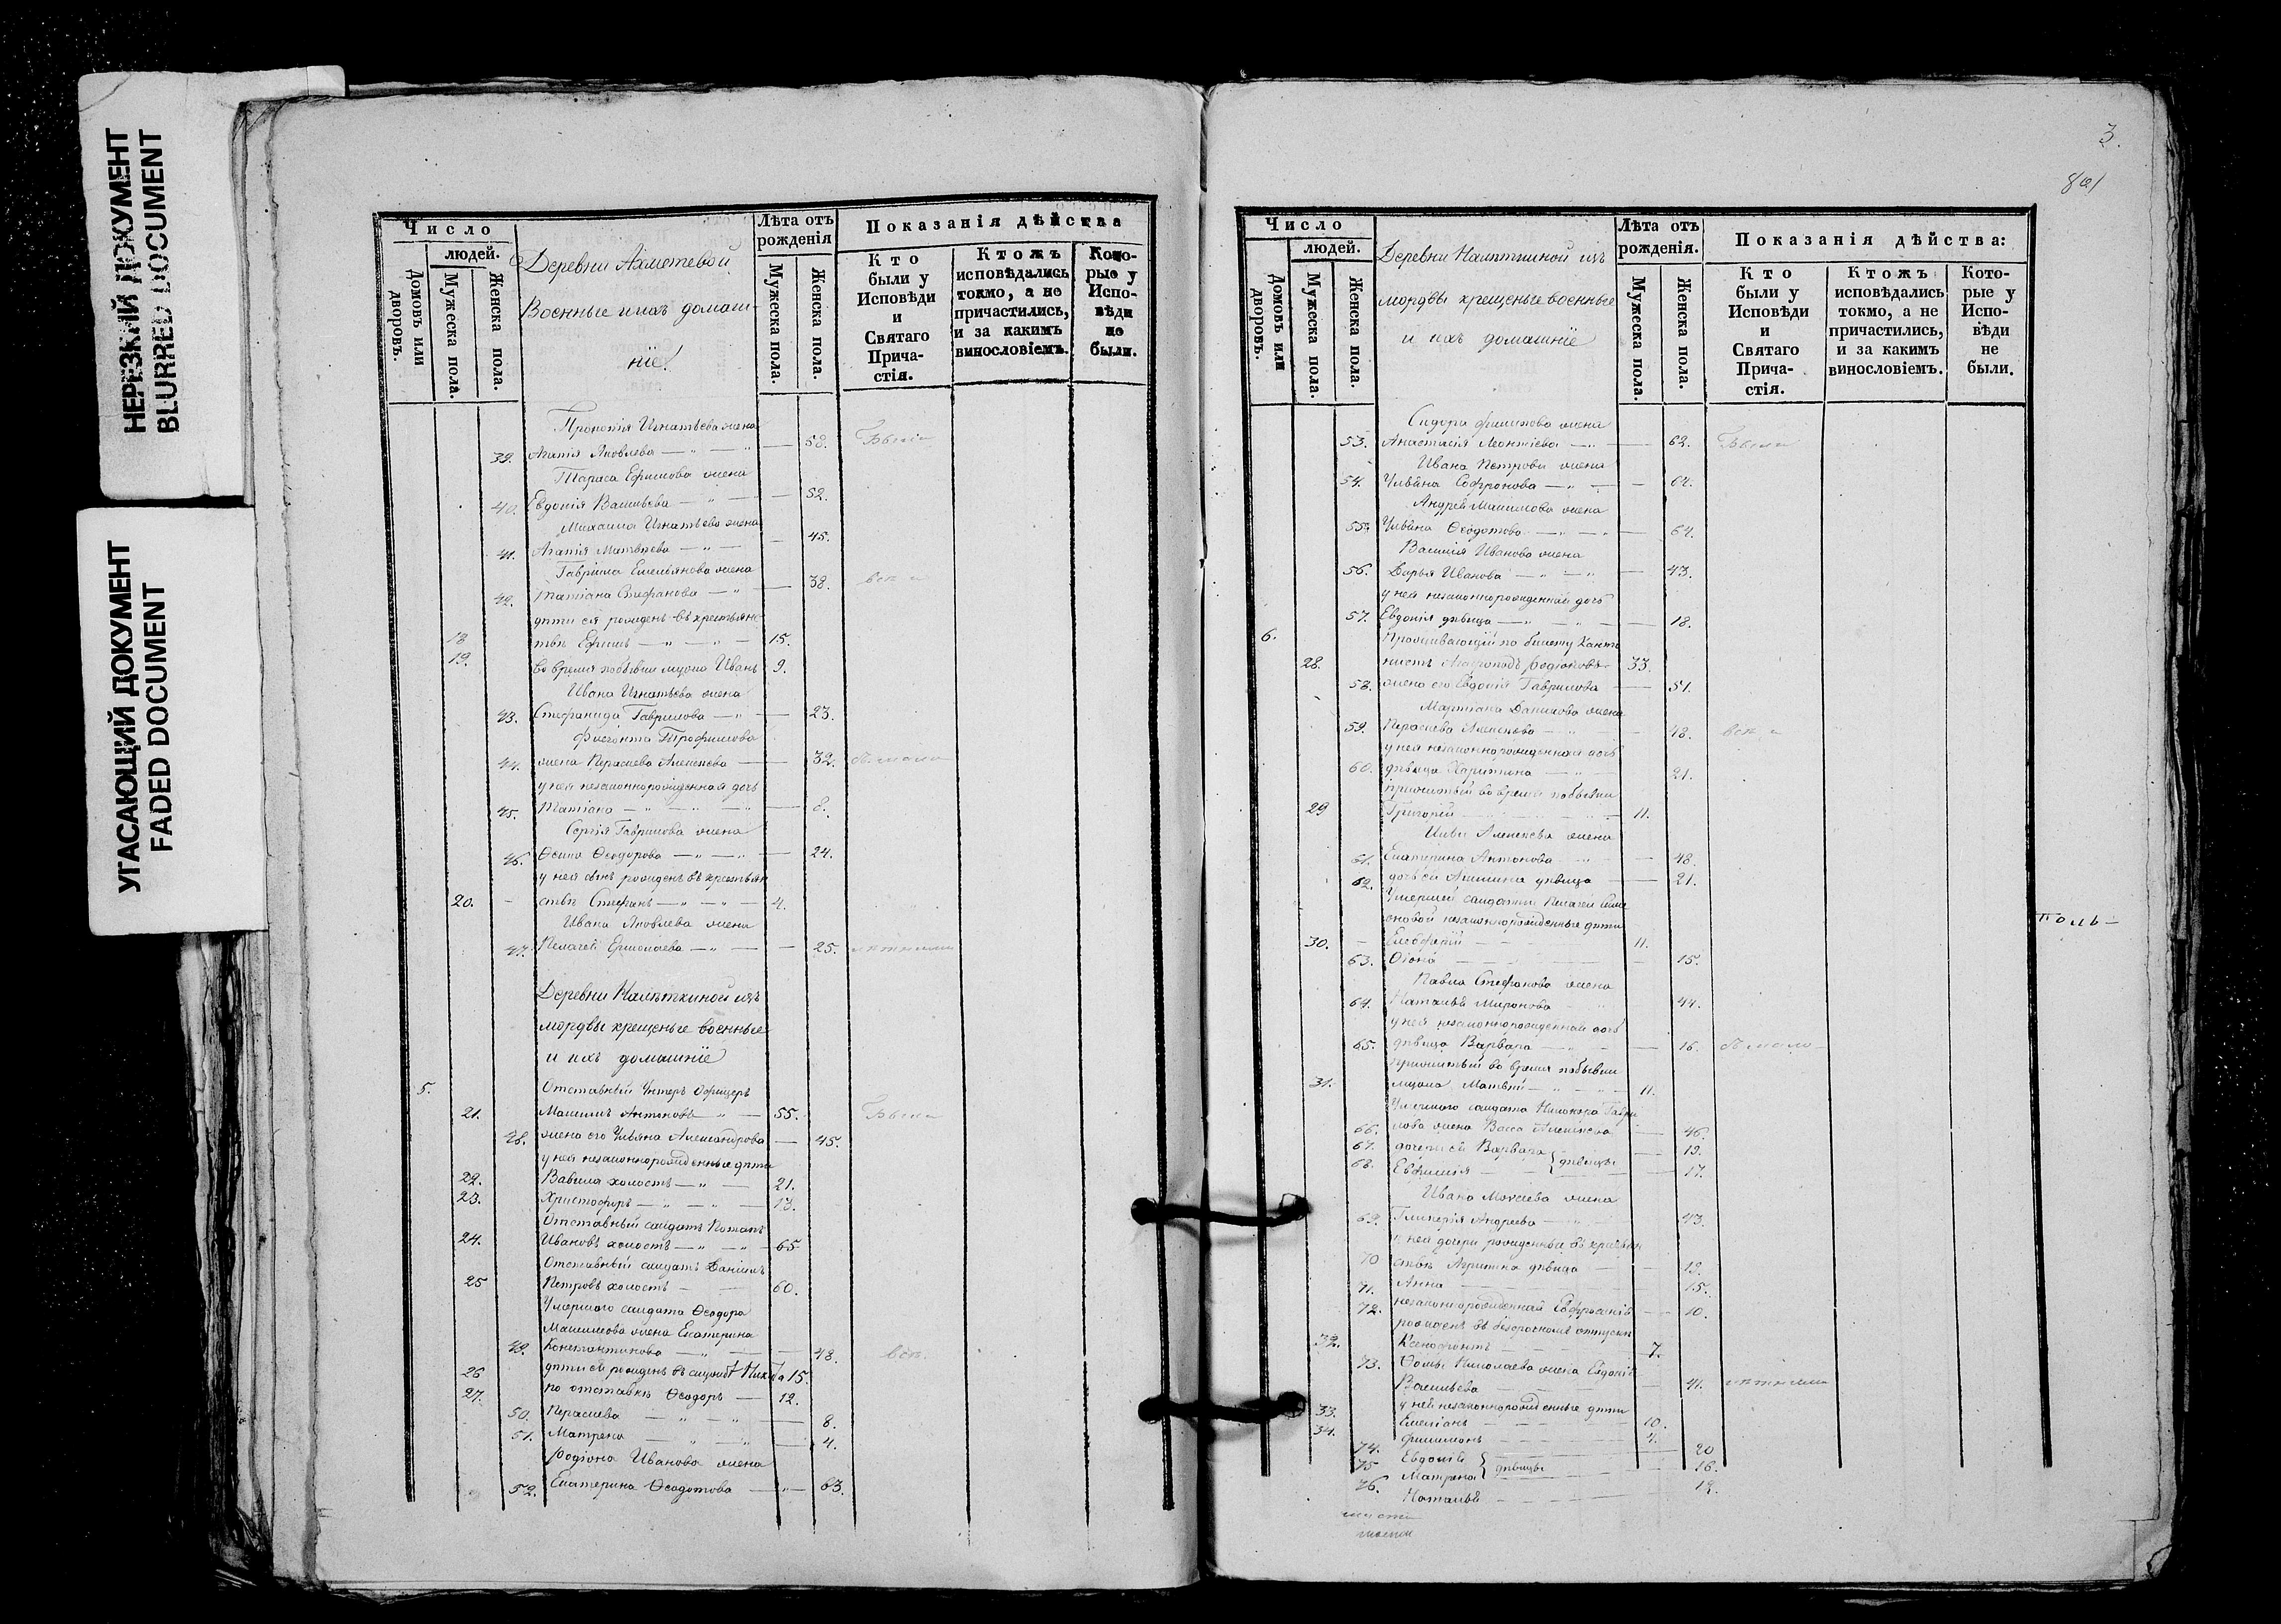 НЕРЕЗКИЙ ДОКУМЕНТ
BLURRED DOCUMENT
УГАСАЮЩИЙ ДОКУМЕНТ
FADED DOCUMENT
Число
людей.
Домовъ или дворовъ.
Мужеска пола.
Женска пола.
Деревни Ахметевой
Военные и ихъ домаш-
ніе.
Лѣта отъ рожденія
Мужеска пола.
Женска пола.
Показанія дѣйства
Кто были у Исповѣди и Святаго Прича-стія.
Ктожъ исповѣдались токмо, а не причастились, и за какимъ винословіемъ.
Кото-рые у Испо-вѣди не были.
Прокопія Игнатьева жена
39. Агатія Яковлева — " — " 58. Были
Тараса Ефимова жена
40. Евдокія Васильева — " — 52.
Михаила Игнатьева жена
41. Агатія Матвѣева — " — 45.
Гавріила Емельянова жена
42. Татіана Стефанова — " — 38.
дѣти ея рожденъ въ крестьянс
18 твѣ Ефимъ — " — " — 15.
19. во время побывки мужа Иванъ 9.
Ивана Игнатьева жена
43. Стефанида Гаврилова — " — 23.
Трофимова
44. жена Параскева Алексѣева — 32.
у ней незаконнорожденная дочь
45. Татіана — " — " — " — 8.
Сергія Гаврилова жена
46. Ѳеодорова — " — " — 24.
у ней сынъ рожденъ въ крестьян
20. ствѣ Стефанъ — " — " — 4.
Ивана Яковлева жена
47. Пелагея Ермолаева — " — 25.
Деревни Налѣткиной изъ
мордвы крещеные военные
и ихъ домашніе
5. Отставный Унтеръ Офицеръ
21. Максимъ Антоновъ " — 55. Были
48. жена его Ульяна Александрова — 45.
у ней незаконнорожденные дѣти
22. Вавила холостъ — " — 21.
23. Христофоръ — " — " — 13.
Отставный солдатъ Потапъ
24. Ивановъ холостъ — " — " — 65
Отставный солдатъ Даніилъ
25 Петровъ холостъ — 60.
Умершаго солдата Ѳеодора
Максимова жена Екатерина
49. Константинова — " — 48.
26 дѣти ея рожденъ въ Никита 15.
27. по отставкѣ Ѳеодоръ — 12.
50. Параскева — " — " — 8.
51. Матрена — " — 4.
Родіона Иванова жена
52. Екатерина Ѳеодотова — " — 63.
3.
Число
людей.
Домовъ или дворовъ.
Мужеска пола.
Женска пола.
Деревни Налѣткиной изъ
мордвы крещеные военные
и ихъ домашніе
Лѣта отъ рожденія.
Мужеска пола.
Женска пола.
Показанія дѣйства:
Кто были у Исповѣди и Святаго Прича-стія.
Ктожъ исповѣдались токмо, а не причастились, и за какимъ винословіемъ.
Кото-рые у Испо-вѣди не были.
Сидора Филипова жена
53. Анастасія Леонтіева — " — 62. Были
Ивана Петрова жена
54. Ульяна Софронова — " — 64.
Андрея Максимова жена
55. Ульяна Ѳеодотова — " — " — 64.
Василія Иванова жена
56. Дарья Иванова — " — " — 43.
у ней незаконнорожденная дочь
57. Евдокія дѣвица — " — " — 18.
6. Проживающій по билету Канто
28. нистъ Родіоновъ 33.
58. жена его Евдокія Гаврилова — 51.
Мартіана Данилова жена
59. Параскева Алексѣева — 48.
у ней незаконнорожденная дочь
60. дѣвица Харитина — " — 21.
прижитый во время побывки
29 Григорій — " — 11.
Алексѣева жена
61. Екатерина Антонова — " — 48.
62. дочь ея Акилина дѣвица — 21.
Умершей солдатки Пелагеи
незаконнорожденные дѣти
30. Елевферій — 11.
63. — 15.
Павла Стефанова жена
64. Наталья Миронова — " 44.
у ней незаконнорожденная дочь
65. дѣвица Варвара — " — 16.
прижитый во время побывки
31. мужа Матвѣй — " — " — 11.
Умершаго солдата Никанора Гаври
66. лова жена Васса Алексѣева — 46.
67. дочери ея Варвара } дѣвицы — 19.
68. Евфимія — 17.
Ивана Моисеева жена
69. Гликерія Андреева — " — 43.
у ней дочери рожденные въ крестьян
70 ствѣ Агрипина дѣвица — 19.
71. Анна — 15.
72. незаконнорожденная Евфросинія — 10.
рожденъ въ безсрочномъ отпуску
32. Ксенофонтъ — 7.
73. Ѳомы Николаева жена Евдокія
Васильева — 41.
у ней незаконнорожденные дѣти
33. Емеліанъ — 10.
34. Филимонъ — 4.
74. Евдокія } дѣвицы — 20
75 Матрена — 16.
76. Наталья — 12.